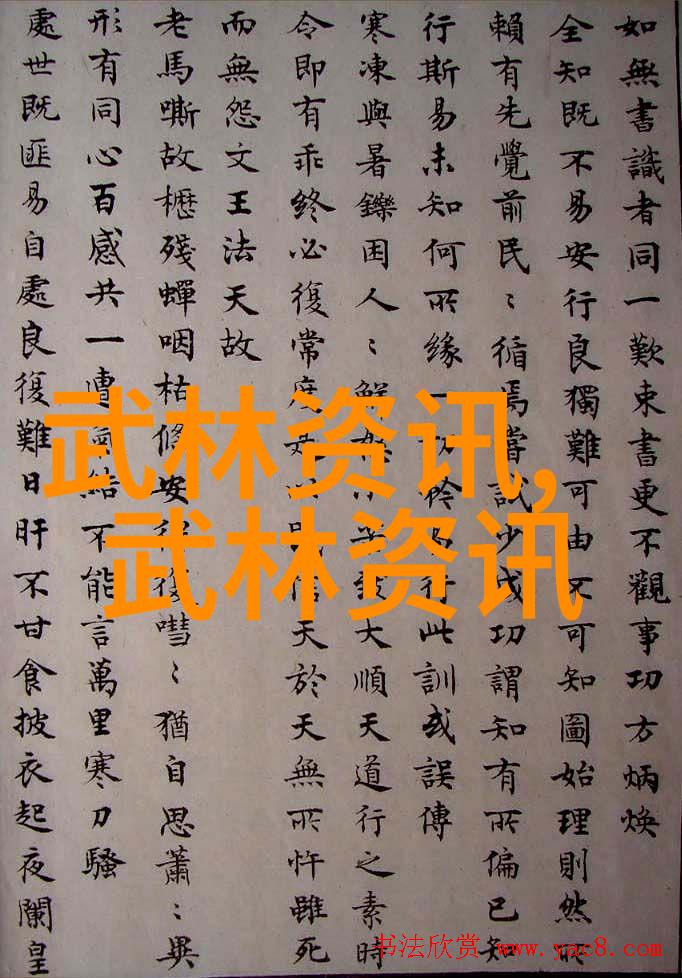 如無書識者同一歎束書更不觀事功方炳煥
全知既不易安行良獨難可由不可知圖始理則然所
賴有先覺前民〻循焉嘗試少成功謂知有所偏已知
行斯易未知何所緣一行此訓或誤傳
寒凍與暑鑠困人〻鮮大順天道行之素時
令即有乖終必復常度天於天無所忤雖死
而無怨文王法天故
老馬嘶故櫪殘蟬咽枯條安復嘒〻猶自思蕭〻異
形有同心百感共一嘈結不能言萬里寒刀騷
處世既匪易自處良復難日旰不甘食披衣起夜闌皇
武林资讯,
武林资讯
书法欣赏 www.yac8.com